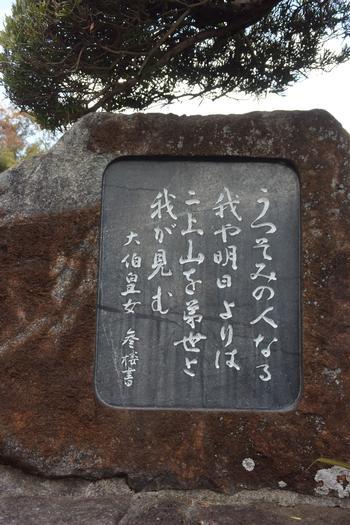 うつそみの人なる
我や明日よりは
二上山を弟世と
我が見む
大伯皇女 孝書